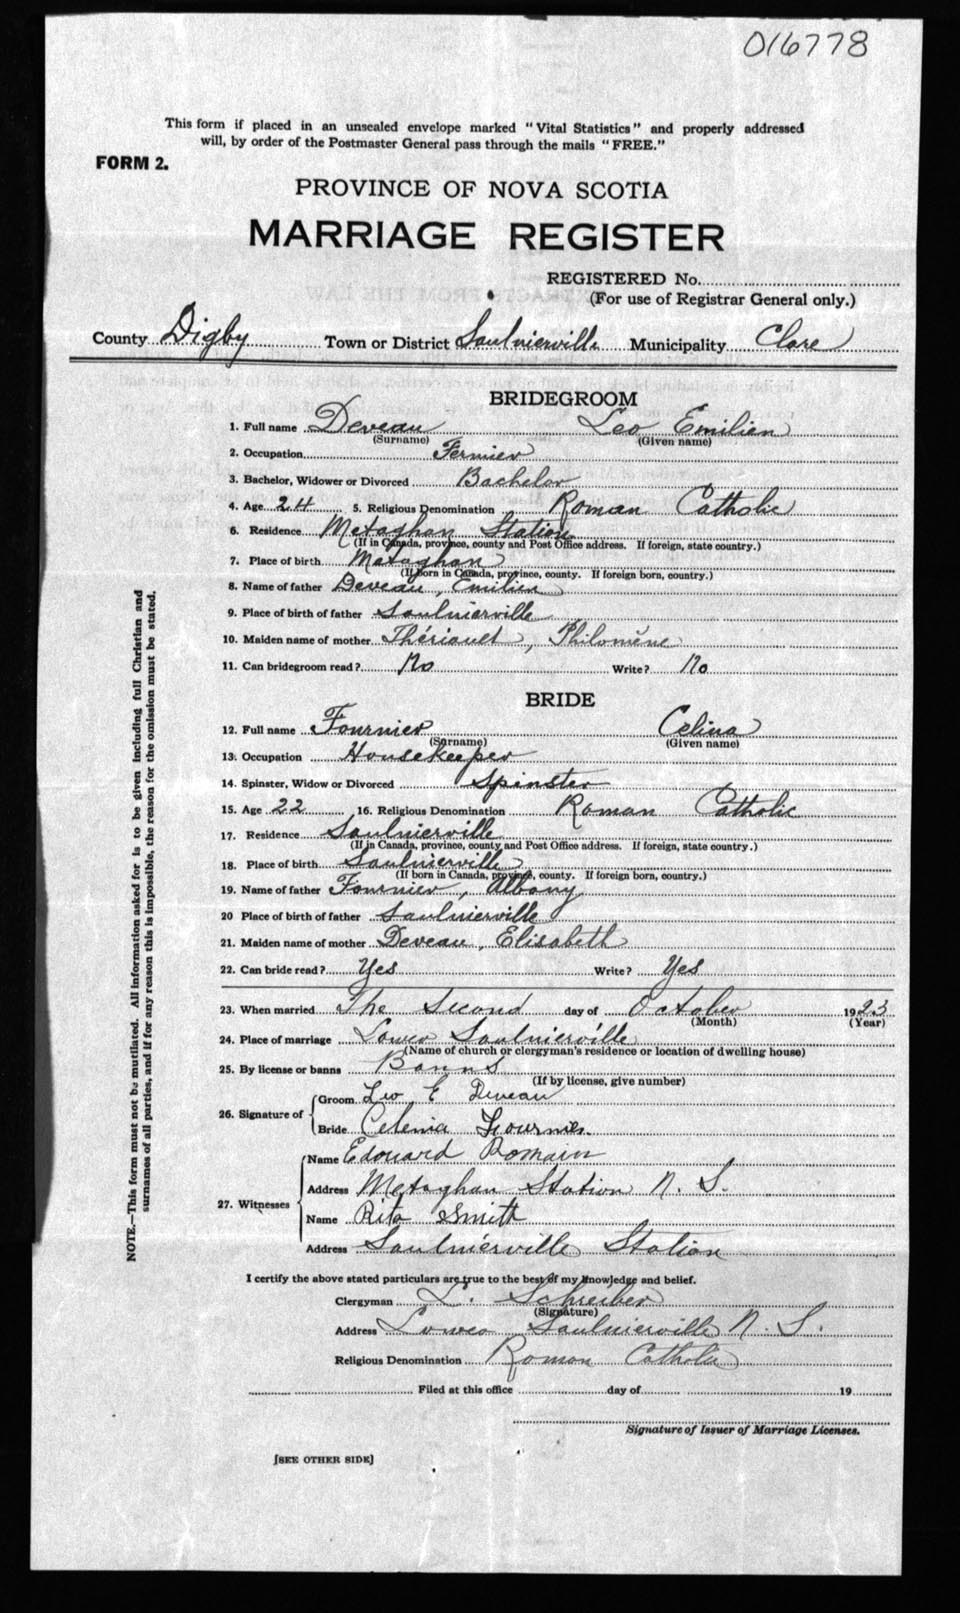 016778
This form if placed in an unsealed envelope marked "Vital Statistics" and properly addressed
will, by order of the Postmaster General pass through the mails "FREE."
FORM 2.
PROVINCE OF NOVA SCOTIA
MARRIAGE REGISTER
REGISTERED No.
(For use of Registrar General only.)
County Digby Town or District Saulnierville Municipality Clare
BRIDEGROOM
1. Full name Deveau Leo Emilien
(Surname) (Given name)
2. Occupation Fermier
3. Bachelor, Widower or Divorced Bachelor
4. Age 24 5. Religious Denomination Roman Catholic
6. Residence Metaghan Station
(If in Canada, province, county and Post Office address. If foreign, state country.)
7. Place of birth Metaghan
(If born in Canada, province, county. If foreign born, country.)
8. Name of father Deveau, Emilien
9. Place of birth of father Saulnierville
10. Maiden name of mother Thériault, Philomène
11. Can bridegroom read? No Write? No
BRIDE
12. Full name Fournier Celina
(Surname) (Given name)
13. Occupation Housekeeper
14. Spinster, Widow or Divorced Spinster
15. Age 22 16. Religious Denomination Roman Catholic
17. Residence Saulnierville
(If in Canada, province, county and Post Office address. If foreign, state country.)
18. Place of birth Saulnierville
(If born in Canada, province, county. If foreign born, country.)
19. Name of father Fournier, Albany
20 Place of birth of father Saulnierville
21. Maiden name of mother Deveau, Elisabeth
22. Can bride read? Yes Write? Yes
23. When married The Second day of October 1923
(Month) (Year)
24. Place of marriage Lower Saulnierville
(Name of church or clergyman's residence or location of dwelling house)
25. By license or banns Banns
(If by license, give number)
26. Signature of Groom Leo E Deveau
Bride Celenia Fournier.
27. Witnesses Name Edouard Romain
Address Metaghan Station N. S.
Name Rita Smith
Address Saulnierville Station
I certify the above stated particulars are true to the best of my knowledge and belief.
Clergyman L. Schreiber
(Signature)
Address Lower Saulnierville N. S.
Religious Denomination Roman Catholic
Filed at this office day of 19
Signature of Issuer of Marriage Licenses.
[SEE OTHER SIDE]
NOTE.—This form must not be mutilated. All information asked for is to be given including full Christian and
surnames of all parties, and if for any reason this is impossible, the reason for the omission must be stated.